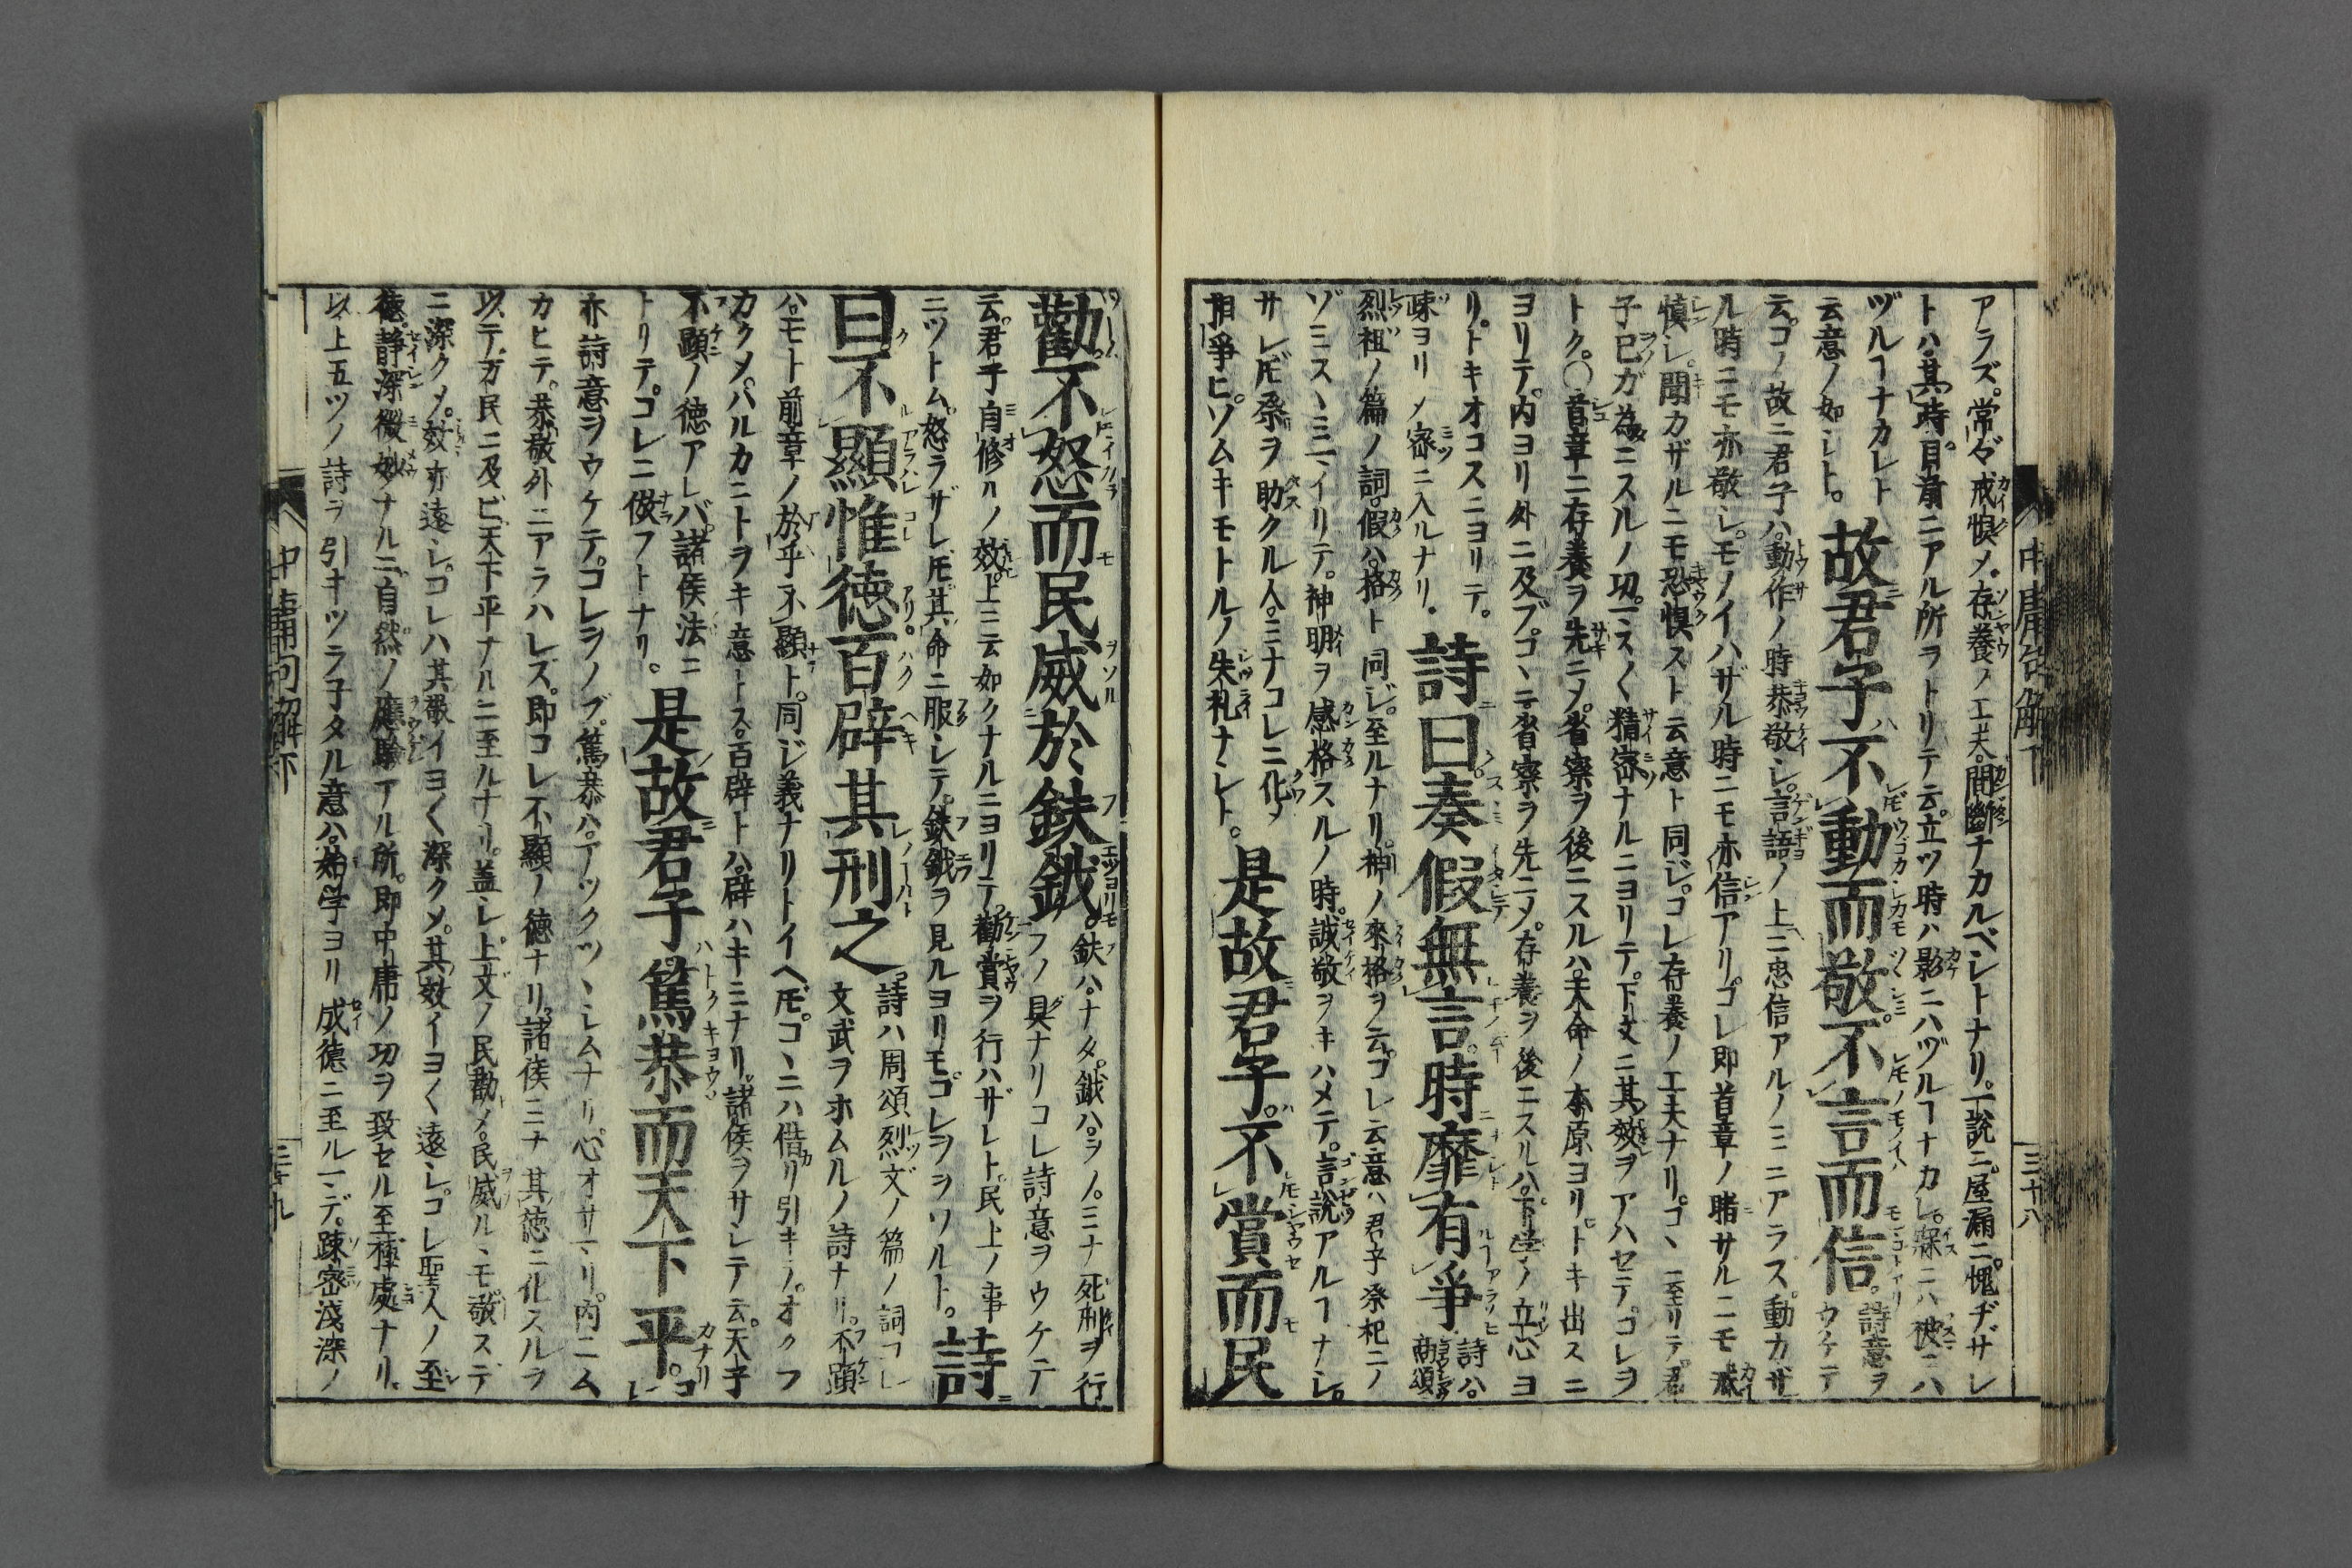 アラズ。常々戒懼メ。存養ノ工夫。間斷ナカルベシトナリ。一說ニ。屋漏ニ。愧ヂサレ
トハ。其時。目前ニアル所ヲトリテ云。立ツ時ハ影ニハヅルヿナカレ。寐ニハ被ニハ
ヅルヿナカレト
云意ノ如シト。故君子不動而敬。不言而信。詩意ヲウケテ
云。コノ故ニ君子ハ。動作ノ時恭敬シ。言語ノ上ニ忠信アルノミニアラス。動カザ
ル時ニモ亦敬シ。モノイハザル時ニモ亦信アリ。コレ即首章ノ睹サルニモ戒
慎シ。聞カザルニモ恐懼スト云意ト同ジ。コレ存養ノ工夫ナリ。コヽニ至リテ。君
子已ガ為ニスルノ功。マスく精宻ナルニヨリテ。下文ニ其效ヲアハセテ。コレヲ
トク。〇首章ニ存養ヲ先ニメ。省察ヲ後ニスルハ。天命ノ本原ヨリトキ出スニ
ヨリテ。内ヨリ外ニ及ブ。コヽニ省察ヲ先ニメ。存養ヲ後ニスルハ。下学ノ立心ヨ
リ。トキオコスニヨリテ。
疎ヨリメ宻ニ入ルナリ。詩曰奏假無言。時靡有爭詩ハ。商頌
烈祖ノ篇ノ詞。假ハ。格ト同ジ。至ルナリ。神ノ來格ヲ云。コレ云意ハ君子祭祀ニノ
ゾミスヽミマイリテ。神明ヲ感格スルノ時。誠敬ヲキハメテ。言說アルヿナシ。
サレ𪜈祭ヲ助クル人。ミナコレニ化メ
相爭ヒ。ソムキモトルノ失礼ナシト。是故君子。不賞而民
勸。不怒而民威於鈇鉞。鈇ハ。ナタ。鉞ハ。ヲノ。ミナ死刑ヲ行フノ具ナリコレ詩意ヲウケテ
云。君子自修ルノ效。上ニ云如クナルニヨリテ。勸賞ヲ行ハザレト。民上ノ事
ニツトム。怒ラザレ𪜈其命ニ服シテ。鈇鉞ヲ見ルヨリモ。コレヲヲソルト。詩
曰。不顯惟徳。百辟其刑之。詩ハ周頌烈文ノ篇ノ詞コレ文武ヲホムルノ詩ナリ。不顯
ハ。モト前章ノ於乎不顯ト。同ジ義ナリトイヘ𪜈。コヽニハ借リ引キメ。オクフ
カクメ。ハルカニトヲキ意トス。百辟トハ。辟ハキミナリ。諸侯ヲサシテ云。天子
不顯ノ徳アレバ。諸侯法ニ
トリテ。コレニ倣フトナリ。是故君子。篤恭而天下平。コレ
亦詩意ヲウケテ。コレヲノブ。篤恭ハ。アツクツヽシムナリ。心オサマリ。内ニム
カヒテ。恭敬外ニアラハレズ。即コレ不顯ノ徳ナリ。諸侯ミナ其徳ニ化スルヲ
以テ。万民ニ及ビ。天下平ナルニ至ルナリ。蓋シ上文ノ民勸メ。民威ルヽモ。敬ステ
ニ深クメ。效亦遠シ。コレハ其敬イヨく深クメ。其效イヨく遠シ。コレ聖人ノ至
徳。静深微妙ナルニ。自然ノ應驗アル所。即中庸ノ功ヲ致セル至極處ナリ。
以上五ツノ詩ヲ引キツラ子タル意ハ。始学ヨリ成徳ニ至ルマデ。疎宻浅深ノ
中庸句解下
三十八
中庸句解下
三十九